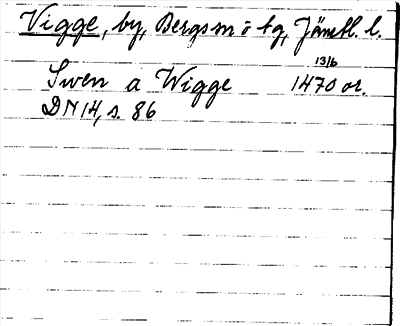 Vigge, by, Bergs sn o tg, Jämtl. l.
13/6
Swen a Wigge 1470 or.
DN 14, s. 86